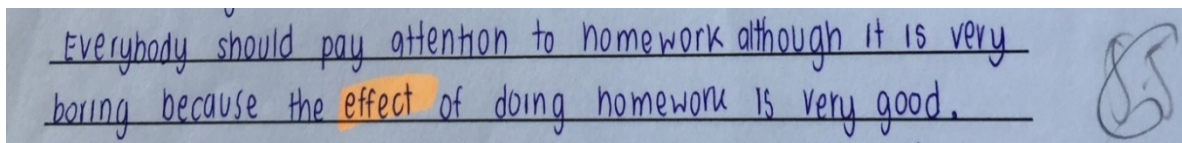 Everybody should pay attention to homework although it is very
boring because the effect of doing homework is very good.
8.5